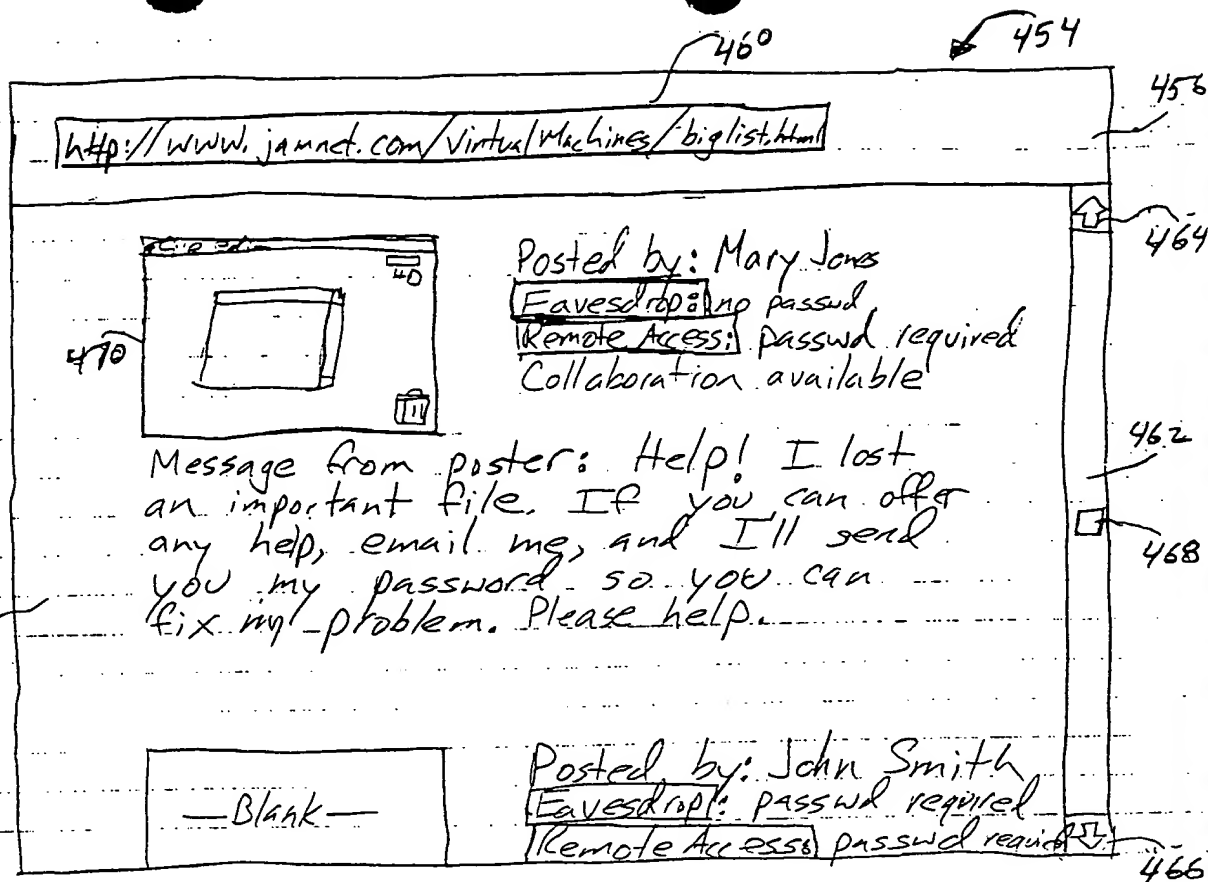 460
454
456
http://www.jamnet.com/VirtualMachines/biglist.html
464
Posted by: Mary Jones
Eavesdrop: no passwd
Remote Access: passwd required
Collaboration available
HD
470
Message from poster: Help! I lost
an important file. If you can offer
any help, email me, and I'll send
you my password so you can
fix my problem. Please help.
462
468
Posted by: John Smith
Eavesdrop: passwd required
Remote Access: passwd
—Blank—
466